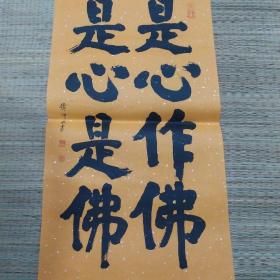 是心作佛
是心是佛